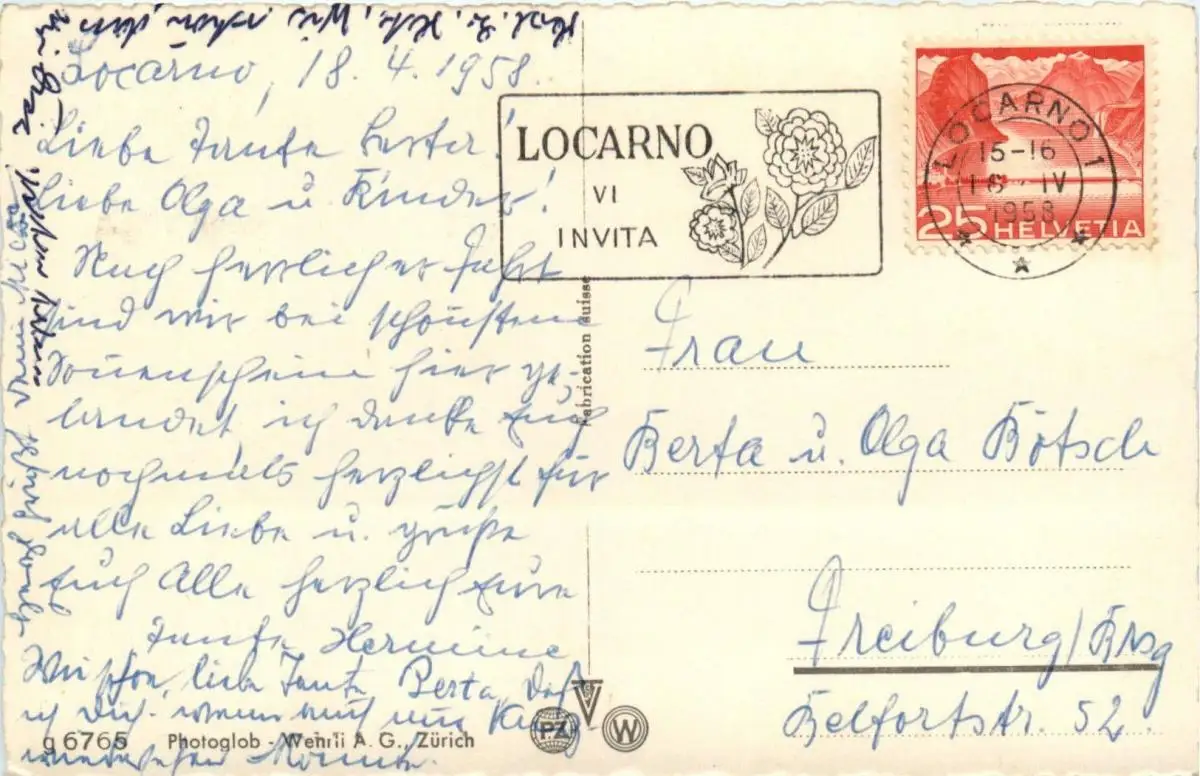 Locarno, 18.4.1958.
Liebe Tante Berta!
Liebe Olga u. Kinder!
Nach herrlicher Fahrt
sind wir bei schönstem
Sonnenschein hier ge-
landet, ich danke Euch
nochmals herzlichst für
alle Liebe u. grüße
Euch Alle herzlich Eure
Tante Hermine
Wie schön, liebe Tante Berta, daß
ich Dich wenn auch nur kurz
wiedersehen konnte.
g 6765 Photoglob-Wehrli A. G., Zürich
Fabrication suisse
PZ
W
LOCARNO
VI
INVITA
LOCARNO 1
15-16
18·IV
1958
25 HELVETIA
Frau
Berta u. Olga Bötsch
Freiburg/Brsg
Belfortstr. 52.